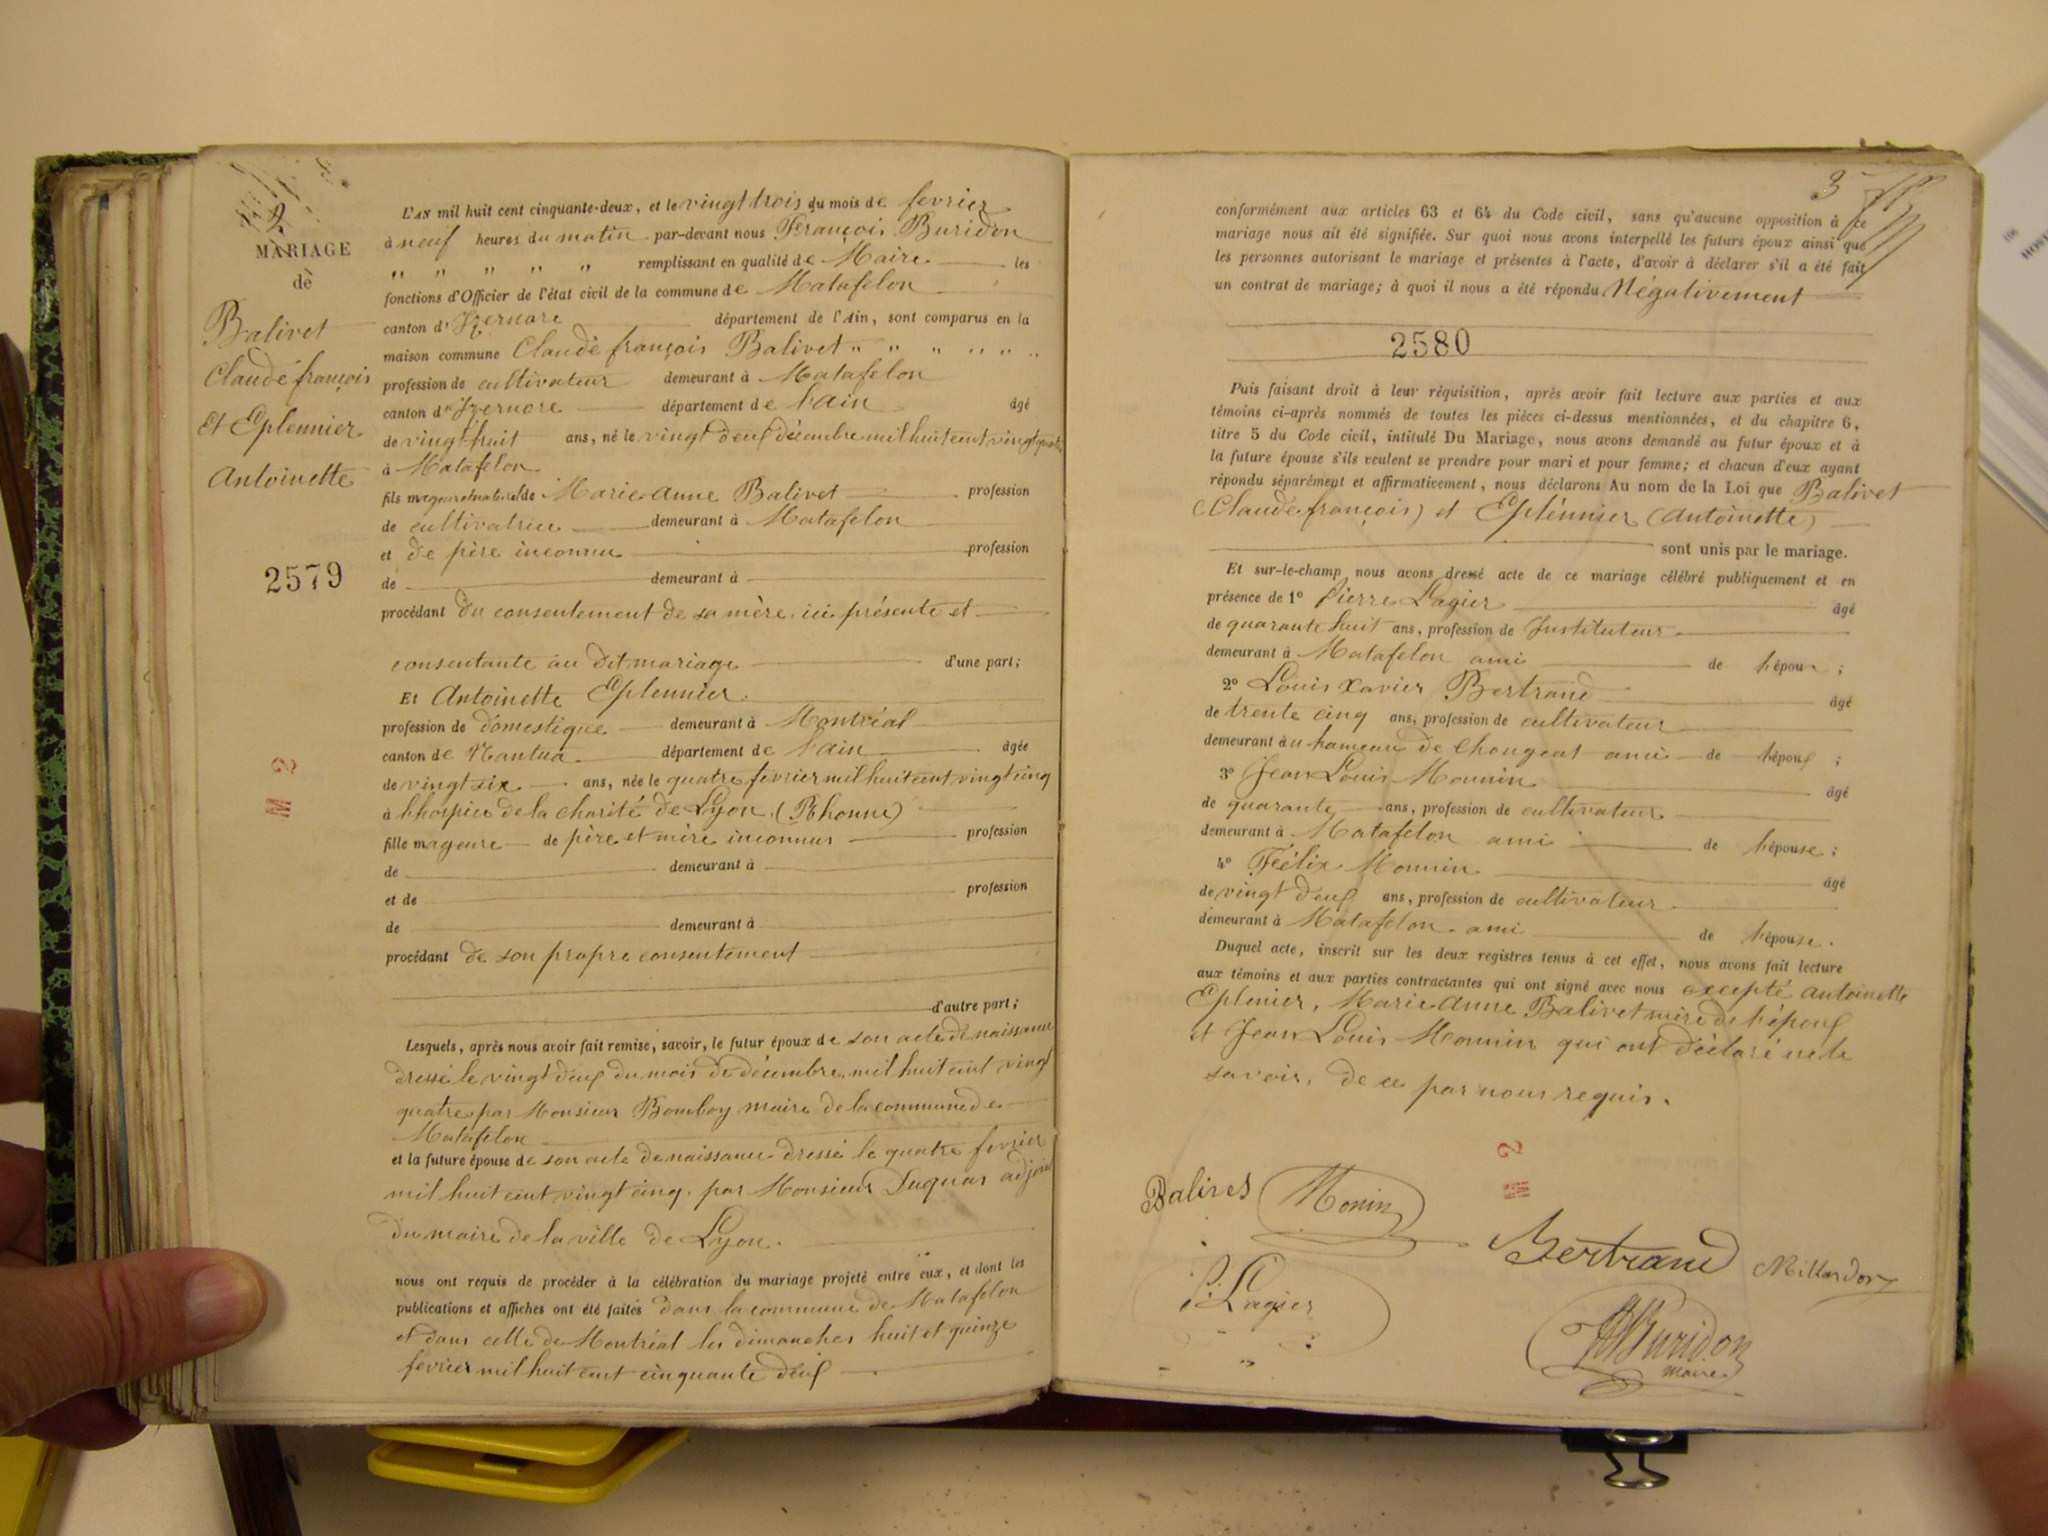 2
MARIAGE
de
Balivet
Claude françois
Et Eplennier
Antoinette
2579
M 2
L'AN mil huit cent cinquante-deux, et le vingt trois du mois de fevrier
à neuf heures du matin par-devant nous François Buridon
" " " " " remplissant en qualité de Maire les
fonctions d'Officier de l'état civil de la commune de Matafelon
canton d'Izernore département de l'Ain, sont comparus en la
maison commune Claude françois Balivet " " " " " "
profession de cultivateur demeurant à Matafelon
canton d'Izernore département de l'ain âgé
de vingt huit ans, né le vingt deux décembre mil huit cent vingt quatre
à Matafelon
fils mageur et naturel de Marie anne Balivet profession
de cultivatrice demeurant à Matafelon
et de père inconnu profession
de demeurant à
procédant du consentement de sa mère ici présente et
consentante au dit mariage d'une part;
Et Antoinette Eplennier
profession de domestique demeurant à Montréal
canton de Nantua département de l'ain âgée
de vingt six ans, née le quatre fevrier mil huit cent vingt cinq
à l'hospice de la charité de Lyon (Rhonne)
fille mageure de père et mère inconnus profession
de demeurant à
et de profession
de demeurant à
procédant de son propre consentement
d'autre part;
Lesquels, après nous avoir fait remise, savoir, le futur époux de son acte de naissance
dressé le vingt deux du mois de décembre mil huit cent vingt
quatre par Monsieur Bomboy maire de la commune de
Matafelon
et la future épouse de son acte de naissance dressé le quatre fevrier
mil huit cent vingt cinq par Monsieur Luquas adjoint
du maire de la ville de Lyon.
nous ont requis de procéder à la célébration du mariage projeté entre eux, et dont les
publications et affiches ont été faites dans la commune de Matafelon
et dans celle de Montréal les dimanches huit et quinze
fevrier mil huit cent cinquante deux
3
conformément aux articles 63 et 64 du Code civil, sans qu'aucune opposition à ce
mariage nous ait été signifiée. Sur quoi nous avons interpellé les futurs époux ainsi que
les personnes autorisant le mariage et présentes à l'acte, d'avoir à déclarer s'il a été fait
un contrat de mariage; à quoi il nous a été répondu Négativement
2580
Puis faisant droit à leur réquisition, après avoir fait lecture aux parties et aux
témoins ci-après nommés de toutes les pièces ci-dessus mentionnées, et du chapitre 6,
titre 5 du Code civil, intitulé Du Mariage, nous avons demandé au futur époux et à
la future épouse s'ils veulent se prendre pour mari et pour femme; et chacun d'eux ayant
répondu séparément et affirmativement, nous déclarons Au nom de la Loi que Balivet
(Claude françois) et Eplénnier (antoinette)
sont unis par le mariage.
Et sur-le-champ nous avons dressé acte de ce mariage célébré publiquement et en
présence de 1° Pierre Lagier âgé
de quarante huit ans, profession de Instituteur
demeurant à Matafelon ami de l'époux;
2° Louis Xavier Bertrand âgé
de trente cinq ans, profession de cultivateur
demeurant au hameau de Chougeat ami de l'époux;
3° Jean Louis Monnin âgé
de quarante ans, profession de cultivateur
demeurant à Matafelon ami de l'épouse;
4° Félix Monnin âgé
de vingt deux ans, profession de cultivateur
demeurant à Matafelon ami de l'épouse.
Duquel acte, inscrit sur les deux registres tenus à cet effet, nous avons fait lecture
aux témoins et aux parties contractantes qui ont signé avec nous excepté antoinette
Eplenier, Marie anne Balivet mère de l'époux
et Jean Louis Monnin qui ont déclaré ne le
savoir, de ce par nous requis.
M 2
Balives Monin
Bertrand Millardon
P. Lagier
Buridon
maire